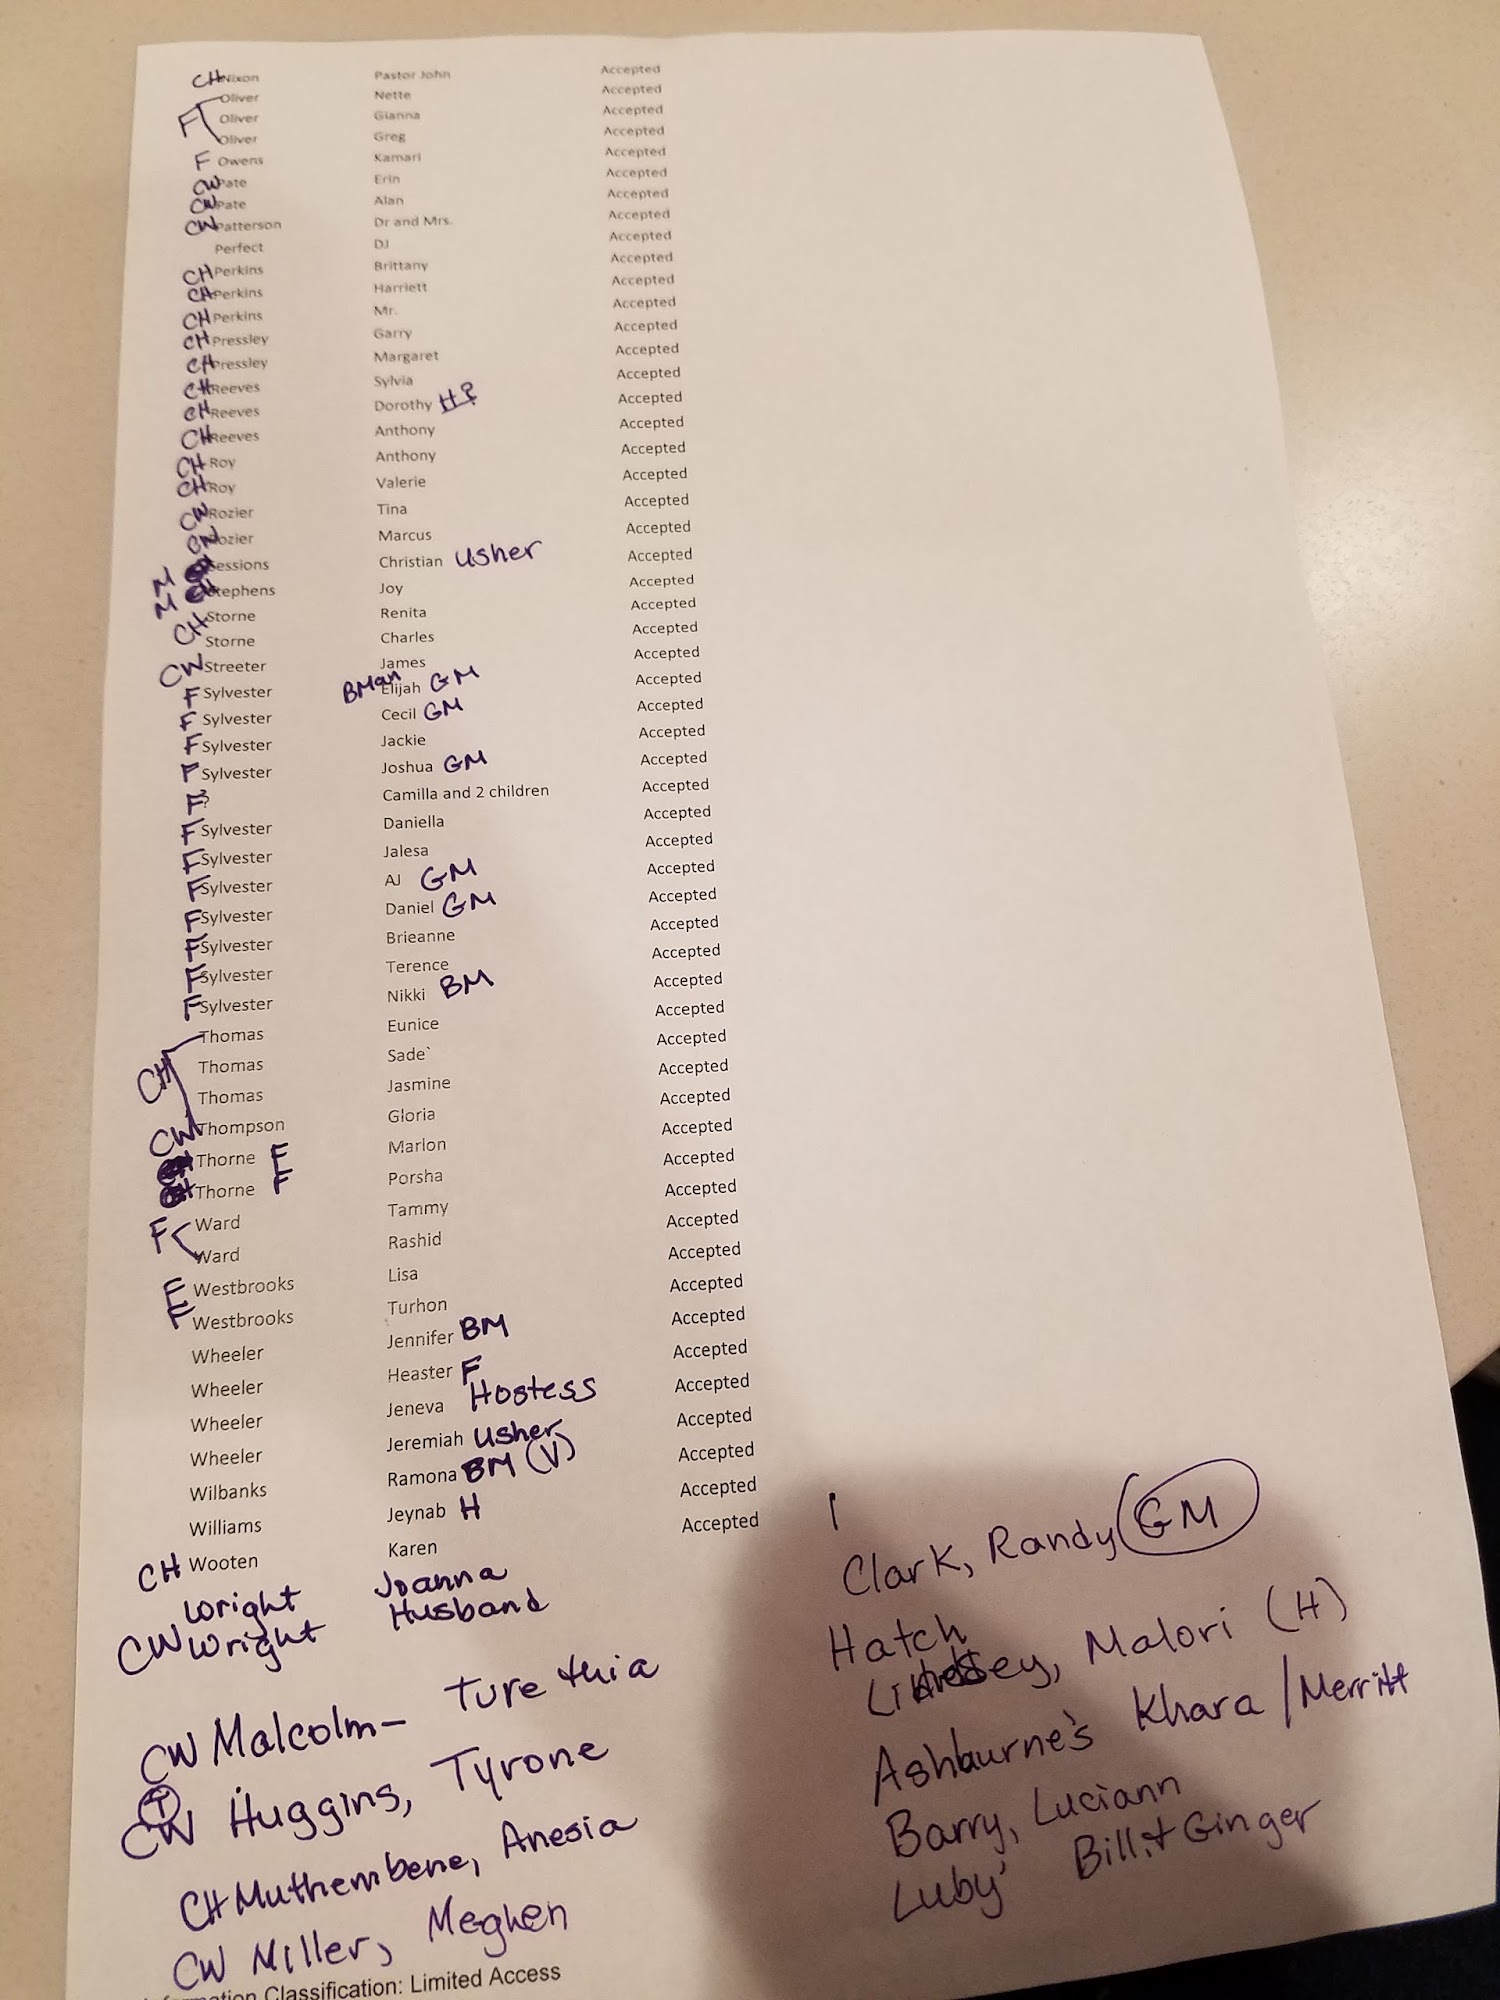 CH Nixon Pastor John Accepted
Oliver Nette Accepted
F Oliver Gianna Accepted
Oliver Greg Accepted
F Owens Kamari Accepted
CW Pate Erin Accepted
CW Pate Alan Accepted
CW Patterson Dr and Mrs. Accepted
Perfect DJ Accepted
CH Perkins Brittany Accepted
CH Perkins Harriett Accepted
CH Perkins Mr. Accepted
CH Pressley Garry Accepted
CH Pressley Margaret Accepted
CH Reeves Sylvia Accepted
CH Reeves Dorothy H? Accepted
CH Reeves Anthony Accepted
CH Roy Anthony Accepted
CH Roy Valerie Accepted
CW Rozier Tina Accepted
CW Rozier Marcus Accepted
M Sessions Christian Usher Accepted
M Stephens Joy Accepted
CH Storne Renita Accepted
Storne Charles Accepted
CW Streeter James Accepted
F Sylvester BMan Elijah GM Accepted
F Sylvester Cecil GM Accepted
F Sylvester Jackie Accepted
F Sylvester Joshua GM Accepted
F? Camilla and 2 children Accepted
F Sylvester Daniella Accepted
F Sylvester Jalesa Accepted
F Sylvester AJ GM Accepted
F Sylvester Daniel GM Accepted
F Sylvester Brieanne Accepted
F Sylvester Terence Accepted
F Sylvester Nikki BM Accepted
Thomas Eunice Accepted
CH Thomas Sade` Accepted
Thomas Jasmine Accepted
CW Thompson Gloria Accepted
Thorne F Marlon Accepted
Thorne F Porsha Accepted
F Ward Tammy Accepted
Ward Rashid Accepted
F Westbrooks Lisa Accepted
F Westbrooks Turhon Accepted
Wheeler Jennifer BM Accepted
Wheeler Heaster F Accepted
Wheeler Jeneva Hostess Accepted
Wheeler Jeremiah Usher Accepted
Wilbanks Ramona BM (V) Accepted
Williams Jeynab H Accepted
CH Wooten Karen Accepted
Wright Joanna
CW Wright Husband
CW Malcolm- Turethia
CW Huggins, Tyrone
CH Muthembene, Anesia
CW Miller, Meghen
Clark, Randy GM
Hatch
Malori (H)
Ashburne's Khara / Merritt
Barry, Luciann
Luby' Bill & Ginger
Classification: Limited Access